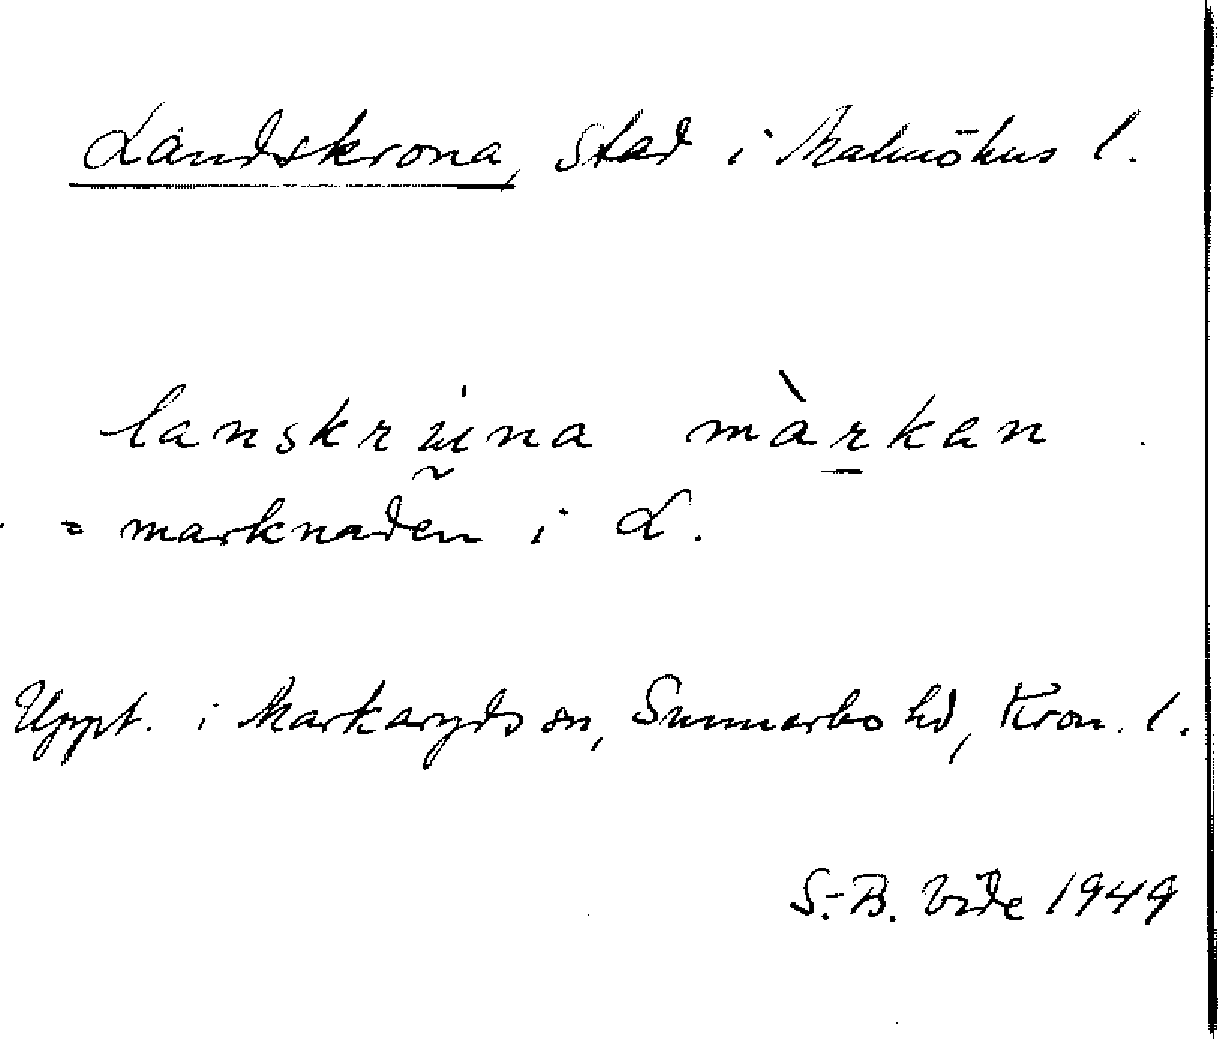 Landskrona, stad i Malmöhus l.
lanskru̇na màr̲kan
= marknaden i L.
Uppt. i Markaryds sn, Sunnerbo hd, Kron. l.
S.-B. Vide 1949